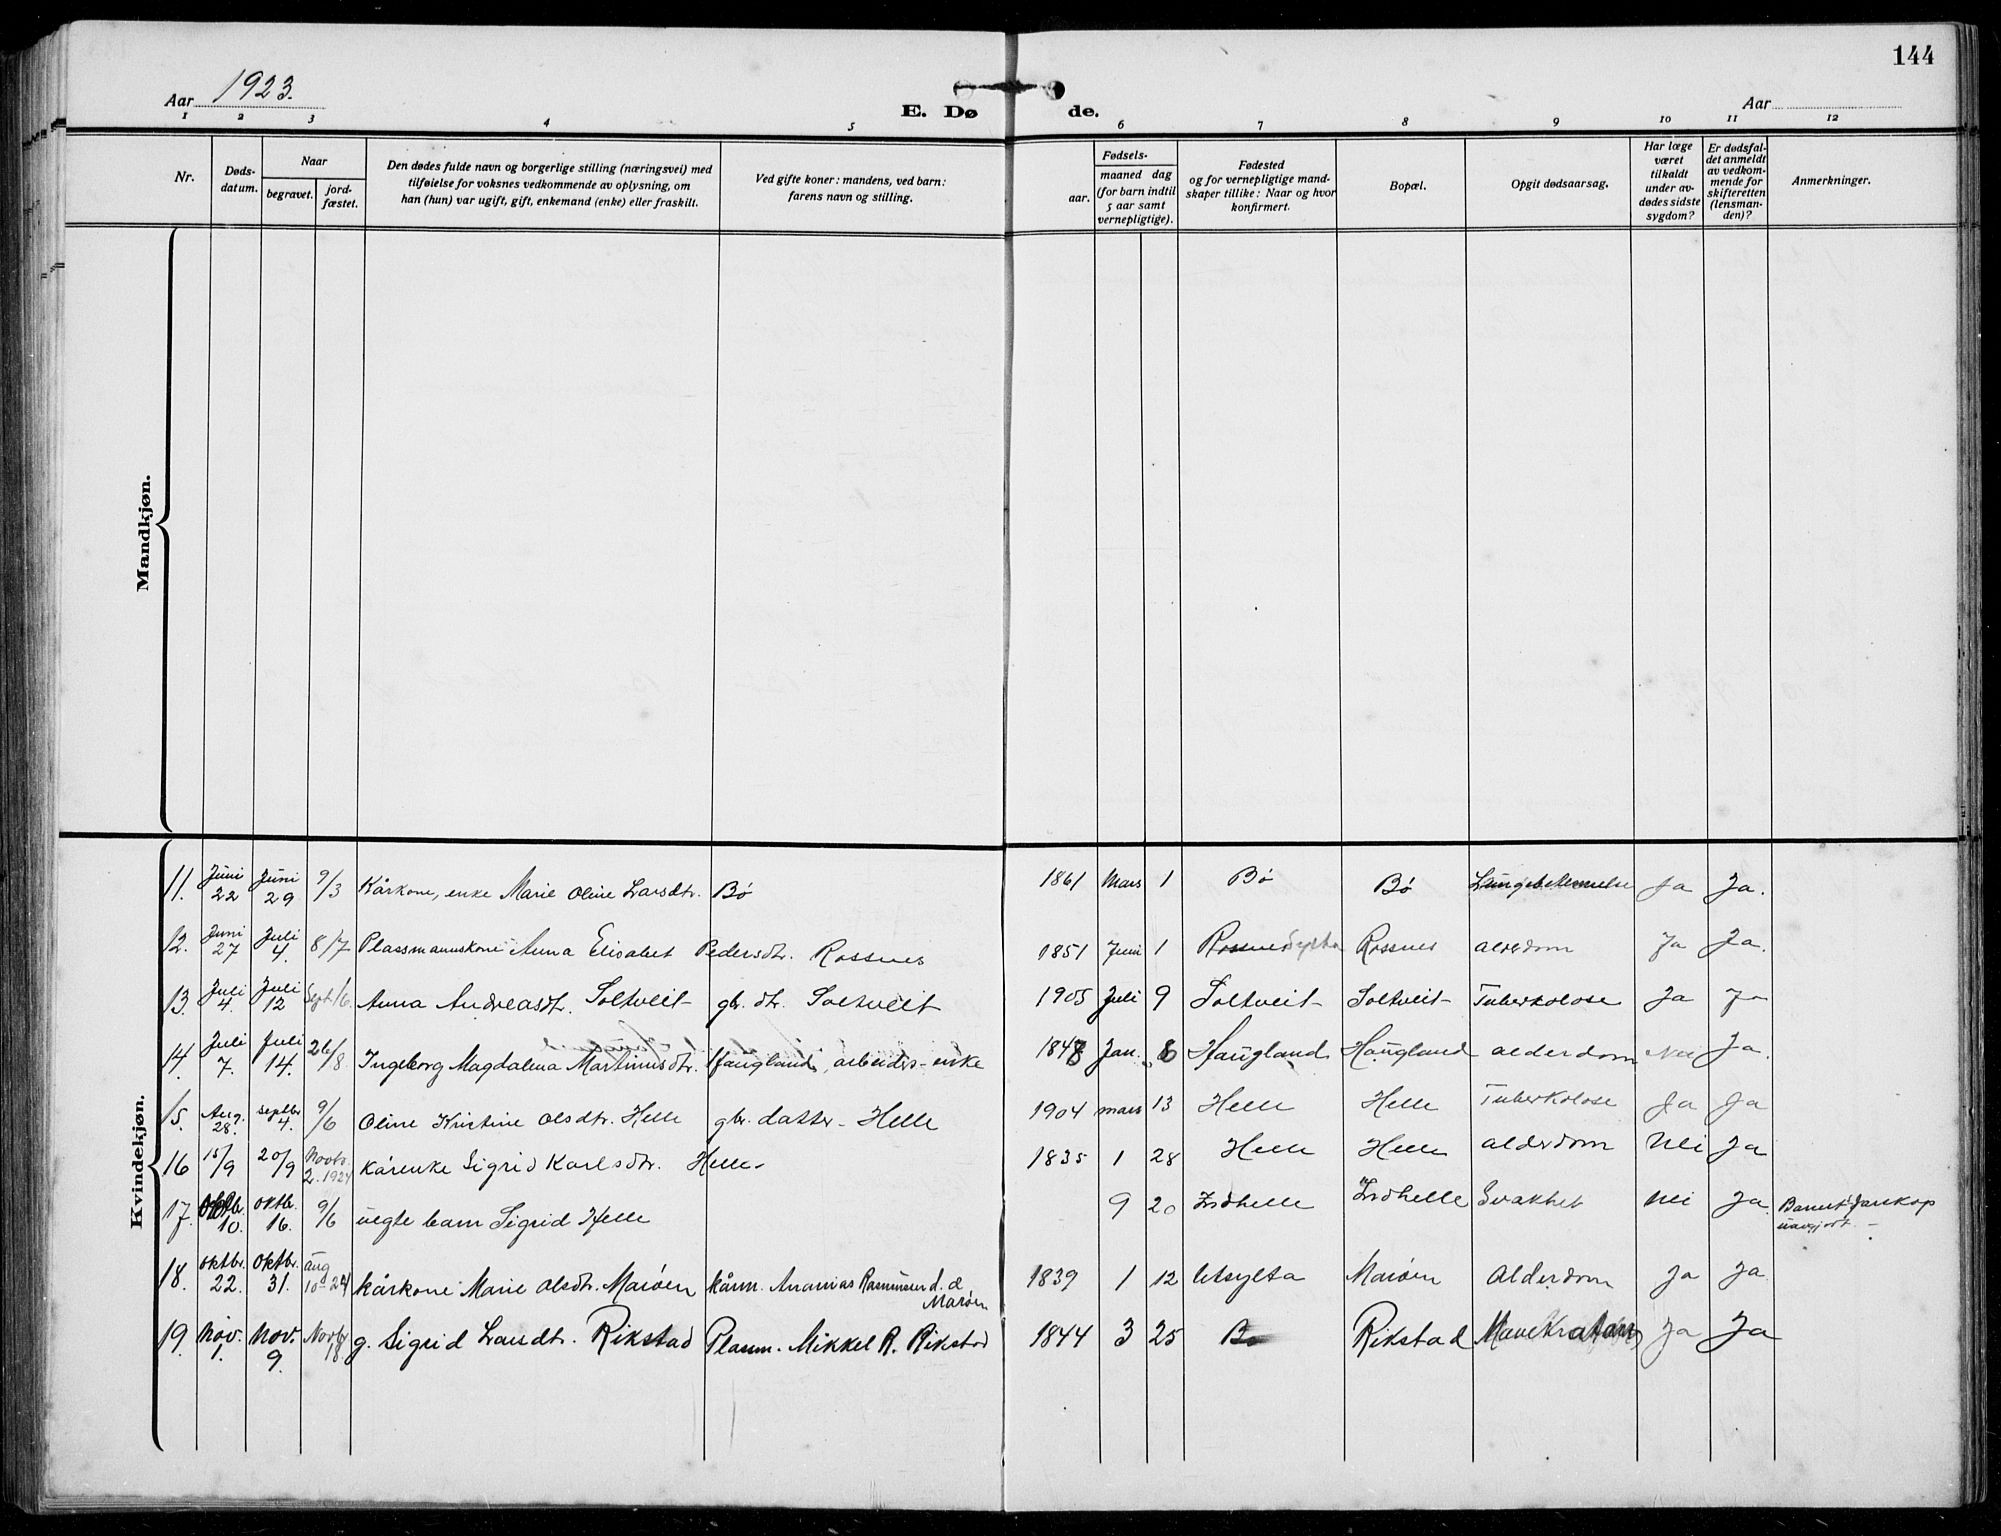 144
Aar 1923.
E. Dø de.
Aar
1 2 3 4 5 6 7 8 9 10 11 12
Nr.
Døds-
datum.
Naar
begravet.
jord-
fæstet.
Den dødes fulde navn og borgerlige stilling (næringsvei) med
tilføielse for voksnes vedkommende av oplysning, om
han (hun) var ugift, gift, enkemand (enke) eller fraskilt.
Ved gifte koner: mandens, ved barn:
farens navn og stilling.
Fødsels-
aar.
maaned dag
(for barn indtil
5 aar samt
vernepligtige).
Fødested
og for vernepligtige mand-
skaper tillike: Naar og hvor
konfirmert.
Bopæl.
Opgit dødsaarsag.
Har læge
været
tilkaldt
under av-
dødes sidste
sygdom?
Er dødsfal-
det anmeldt
av vedkom-
mende for
skifteretten
(lensman-
den)?
Anmerkninger.
Mandkjøn.
Kvindekjøn.
11. Juni 22 Juni 29 9/3 Kårkone, enke Marie Oline Larsdtr. Bø 1861 Mars 1 Bø Bø Lungebetennelse Ja Ja.
12. Juni 27 Juli 4. 8/7 Plassmannskone Anna Elisabet Pedersdtr. Rossnes 1851 Juni 1 Rossnes alderdom Ja Ja.
13. Juli 4. Juli 12 Sept 16. Anna Andreasdt. Soltveit gbr. dtr. Soltveit 1905 Juli 9 Soltveit Soltveit Tuberkolose Ja Ja
14. Juli 7. Juli 14. 26/8 Ingeborg Magdalena Martinusdtr. Haugland, arbeids-enke 1848 Jan. 6 Haugland Haugland alderdom Nei Ja.
15. Aug. 28. Septbr 4. 9/6 Oline Kristine Olsdtr. Helle gbr. datter - Helle 1904 mars 13 Helle Helle Tuberkolose Ja Ja
16 15/9 20/9 Novbr. 2. 1924 kårenke Sigrid Karlsdtr. Helle- 1835 1 28 Helle Helle alderdom Nei Ja
17. Oktbr. 10. Oktbr. 16. 9/6 uegte barn Sigrid Helle 9 20 Indhelle Indhelle Svakhet Nei Ja. Barnets
18. Oktbr. 22. Oktbr. 31. aug 10-24 kårkone Marie Olsdtr. Marøen kårm. Ananias Rasmussen d. e.
Marøen 1839 1 12 Utsylta Marøen Alderdom Ja Ja
19. Nov. 1. Nov. 9. Novbr 18 g. Sigrid Larsdtr. Rikstad Plassm. Mikkel R. Rikstad 1844 3 25 Bø Rikstad Mavekatarr Ja Ja